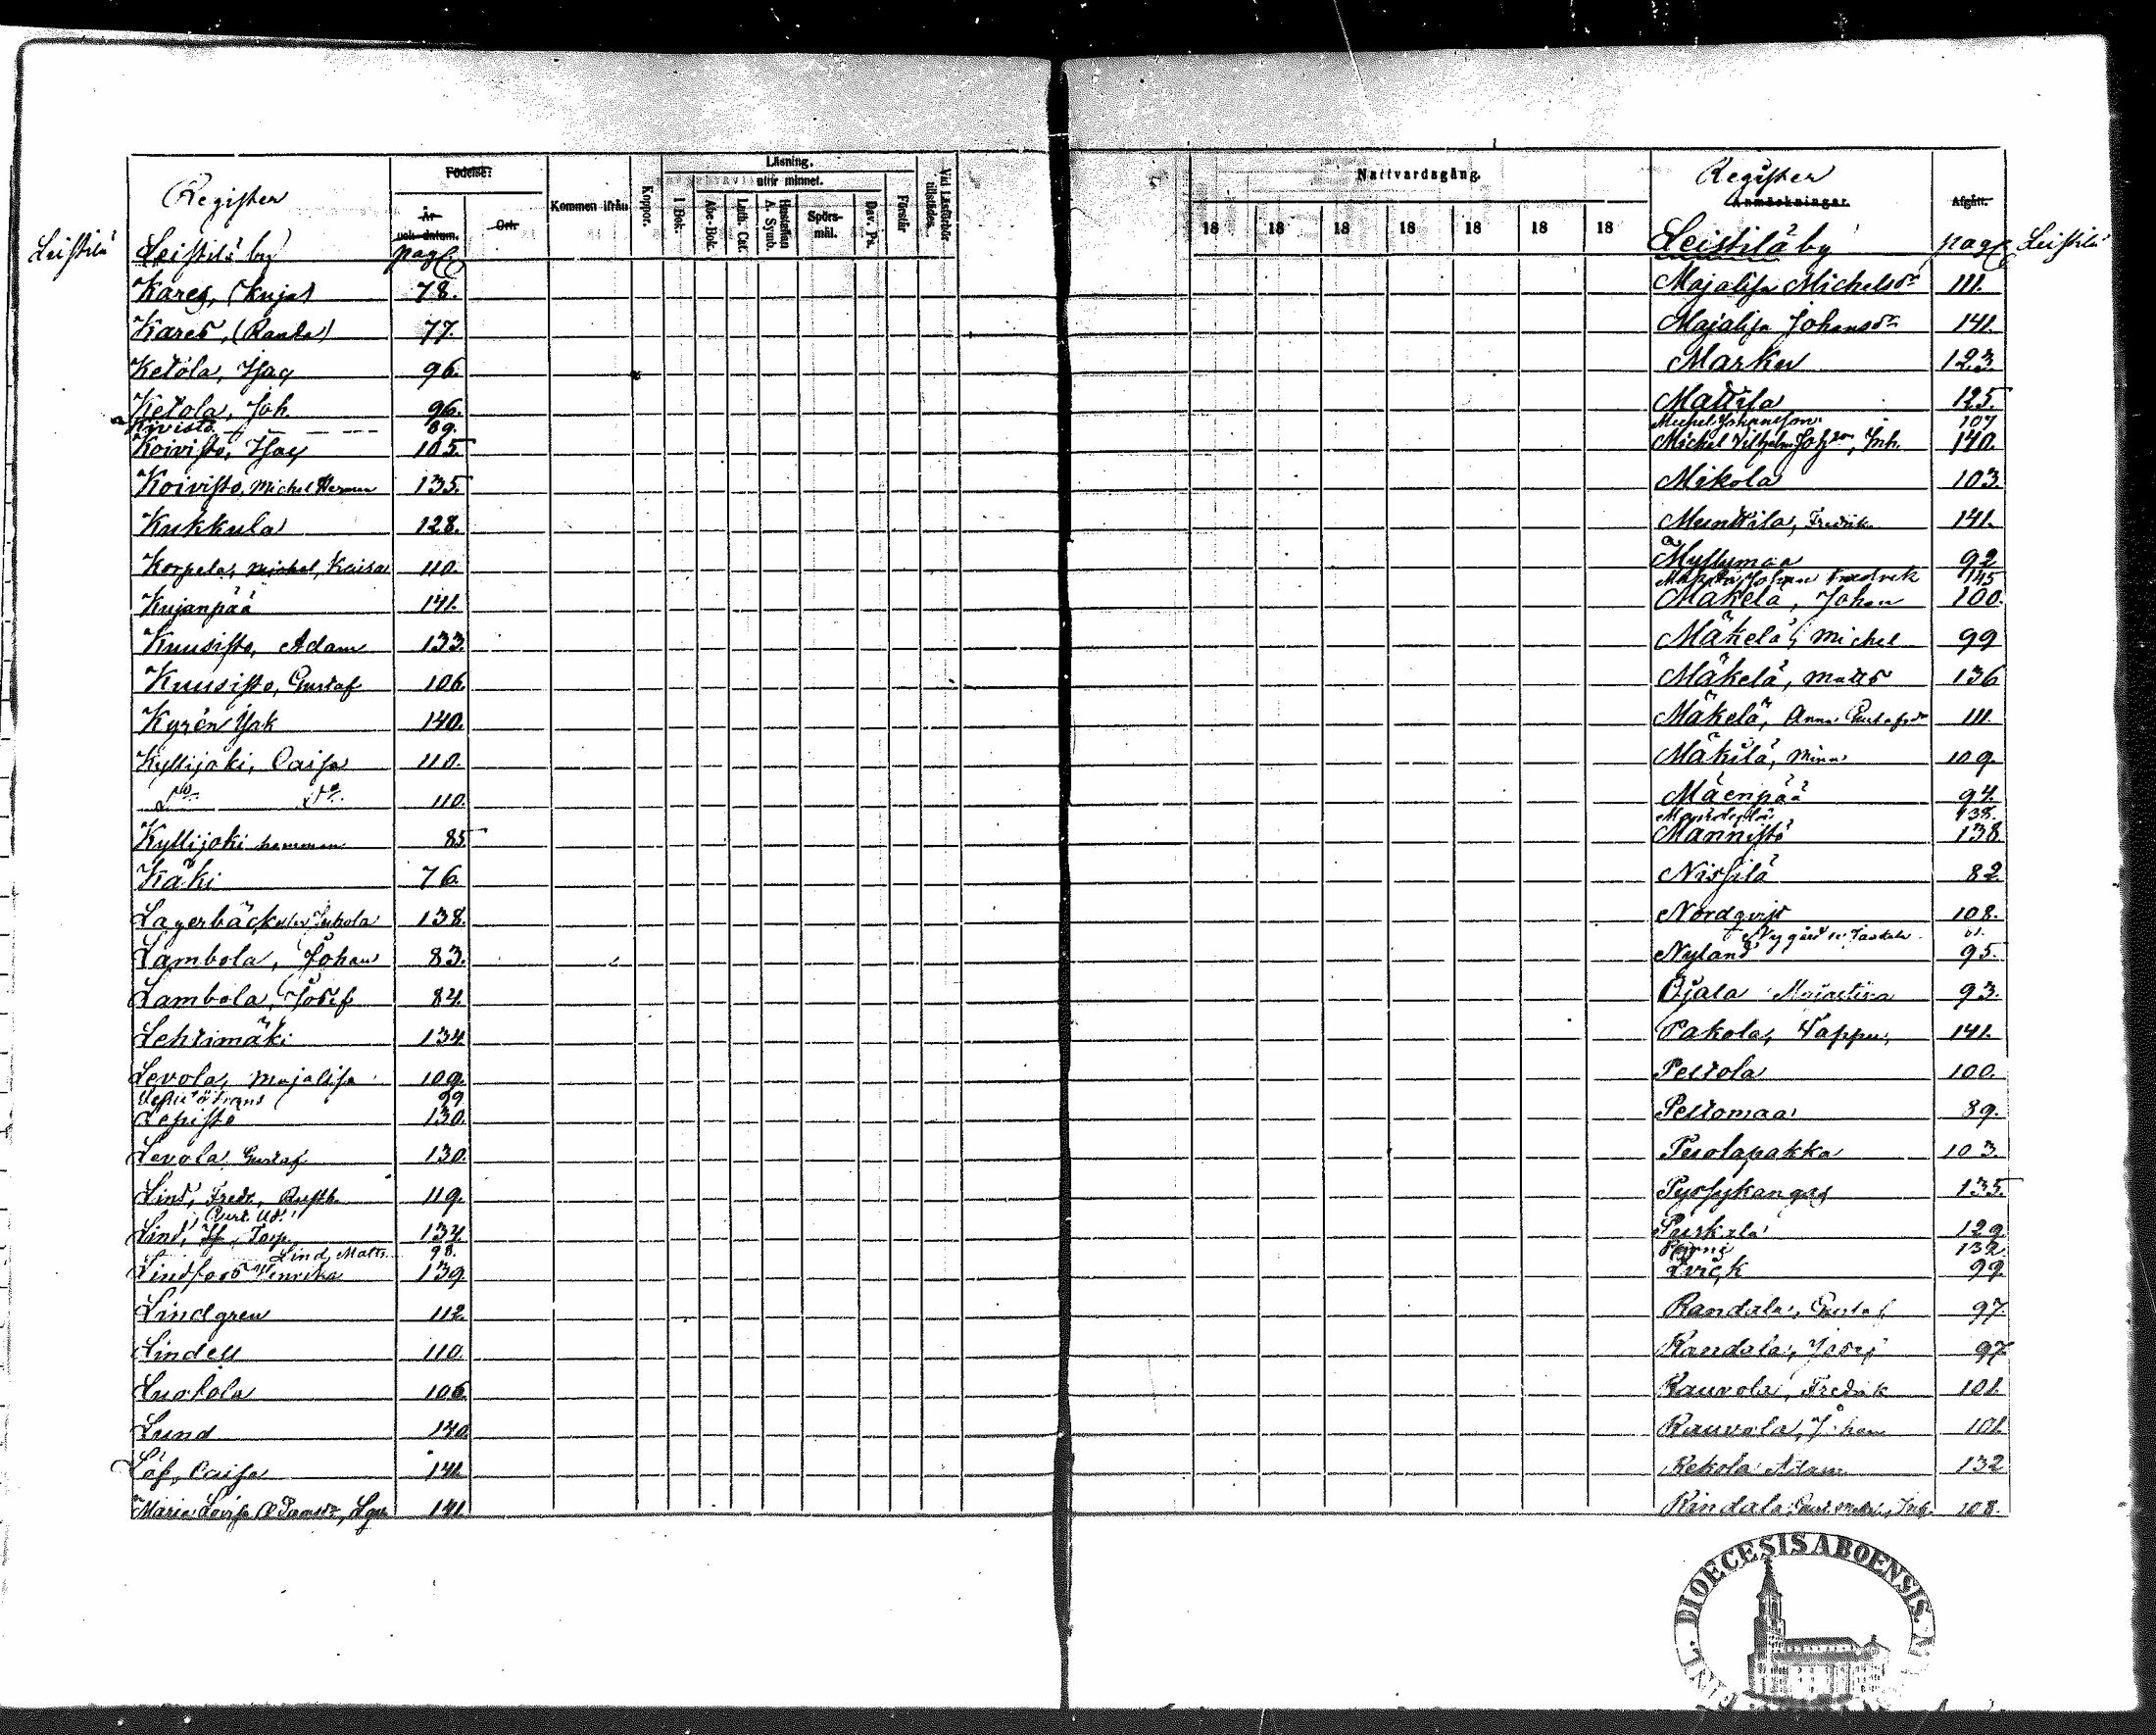 Register
Födelse:
År
och datum.
Ort.
Kommen ifrån
Koppor.
Läsning.
utur minnet.
I Bok.
Abc-Bok.
Luth. Cat.
Hustaflan
A. Symb.
Spörs-
mål.
Dav. Ps.
Förstår
Vid Läsförhör
tillstädes.
Leistilä
Leistilä by
pag
Kares, (Kujas) 78.
Kares, (Randa) 77.
Ketola, Isac 96.
Ketola, Joh 96.
Kivistö 89.
Koivisto, Isac 105
Koivisto, Michel Herman 135
Kukkula 128.
Korpela, Michel, Kaisa 110.
Kujanpää 141.
Kuusisto, Adam 133.
Kuusisto, Gustaf 106.
Kyrén Isak 140.
Kyllijoki, Caisa 110.
Do Do 110.
Kyllijoki hemman 85
Käki 76.
Lagerbäck eller Jukola 138.
Lambola, Johan 83.
Lambola, Josef 84.
Lehtimäki 134
Levola, Majalisa 109.
Frans 99
Lepistö 130.
Levola Gustaf 130.
Lind, Fredr., Rusth. 119.
Lind, Torp 134
Lind, Matts 98.
Lindfors Henrika 139.
Lindgren 112.
Lindell 110.
Luotola 106.
Lund 140.
Löf, Caisa 141.
Maria Lovisa Adamsdr, 141.
Nattvardsgång.
18 18 18 18 18 18 18
Register
Anmärkningar.
Afgått.
Leistilä by
pag
Leistilä
Majalisa Michelsdr 111.
Majalisa Johansdr 141.
Marku 123.
Mattila 125.
Michel Johansson 107
Michel Vilhelm Johsson, Inh. 140.
Mikola 103
Munttila, Fredrik 141.
Myllymaa 92
Johan Fredrik 145
Mäkelä, Johan 100.
Mäkelä, Michel 99
Mäkelä, Matts 136
Mäkelä, Anna Gustafsdr 111.
Mäkilä, Mina 109.
Mäenpää 94.
138.
Männistö 138.
Nissilä 82
Nordqvist 108.
Nygård
Nyland 95.
Ojala Majastina 93.
Pakola, Tappu, 141.
Peltola 100.
Peltomaa 89.
Puolapakka 103.
Pyssykangas 135.
Puskala 129.
132
Qvick 99
Randala, Gustaf 97.
Randala, Josef 97
Rauvola, Fredrik 101.
Rauvola, Johan 101.
Rekola Adam 132
Rindala 108.
DIOECESIS ABOENSIS.